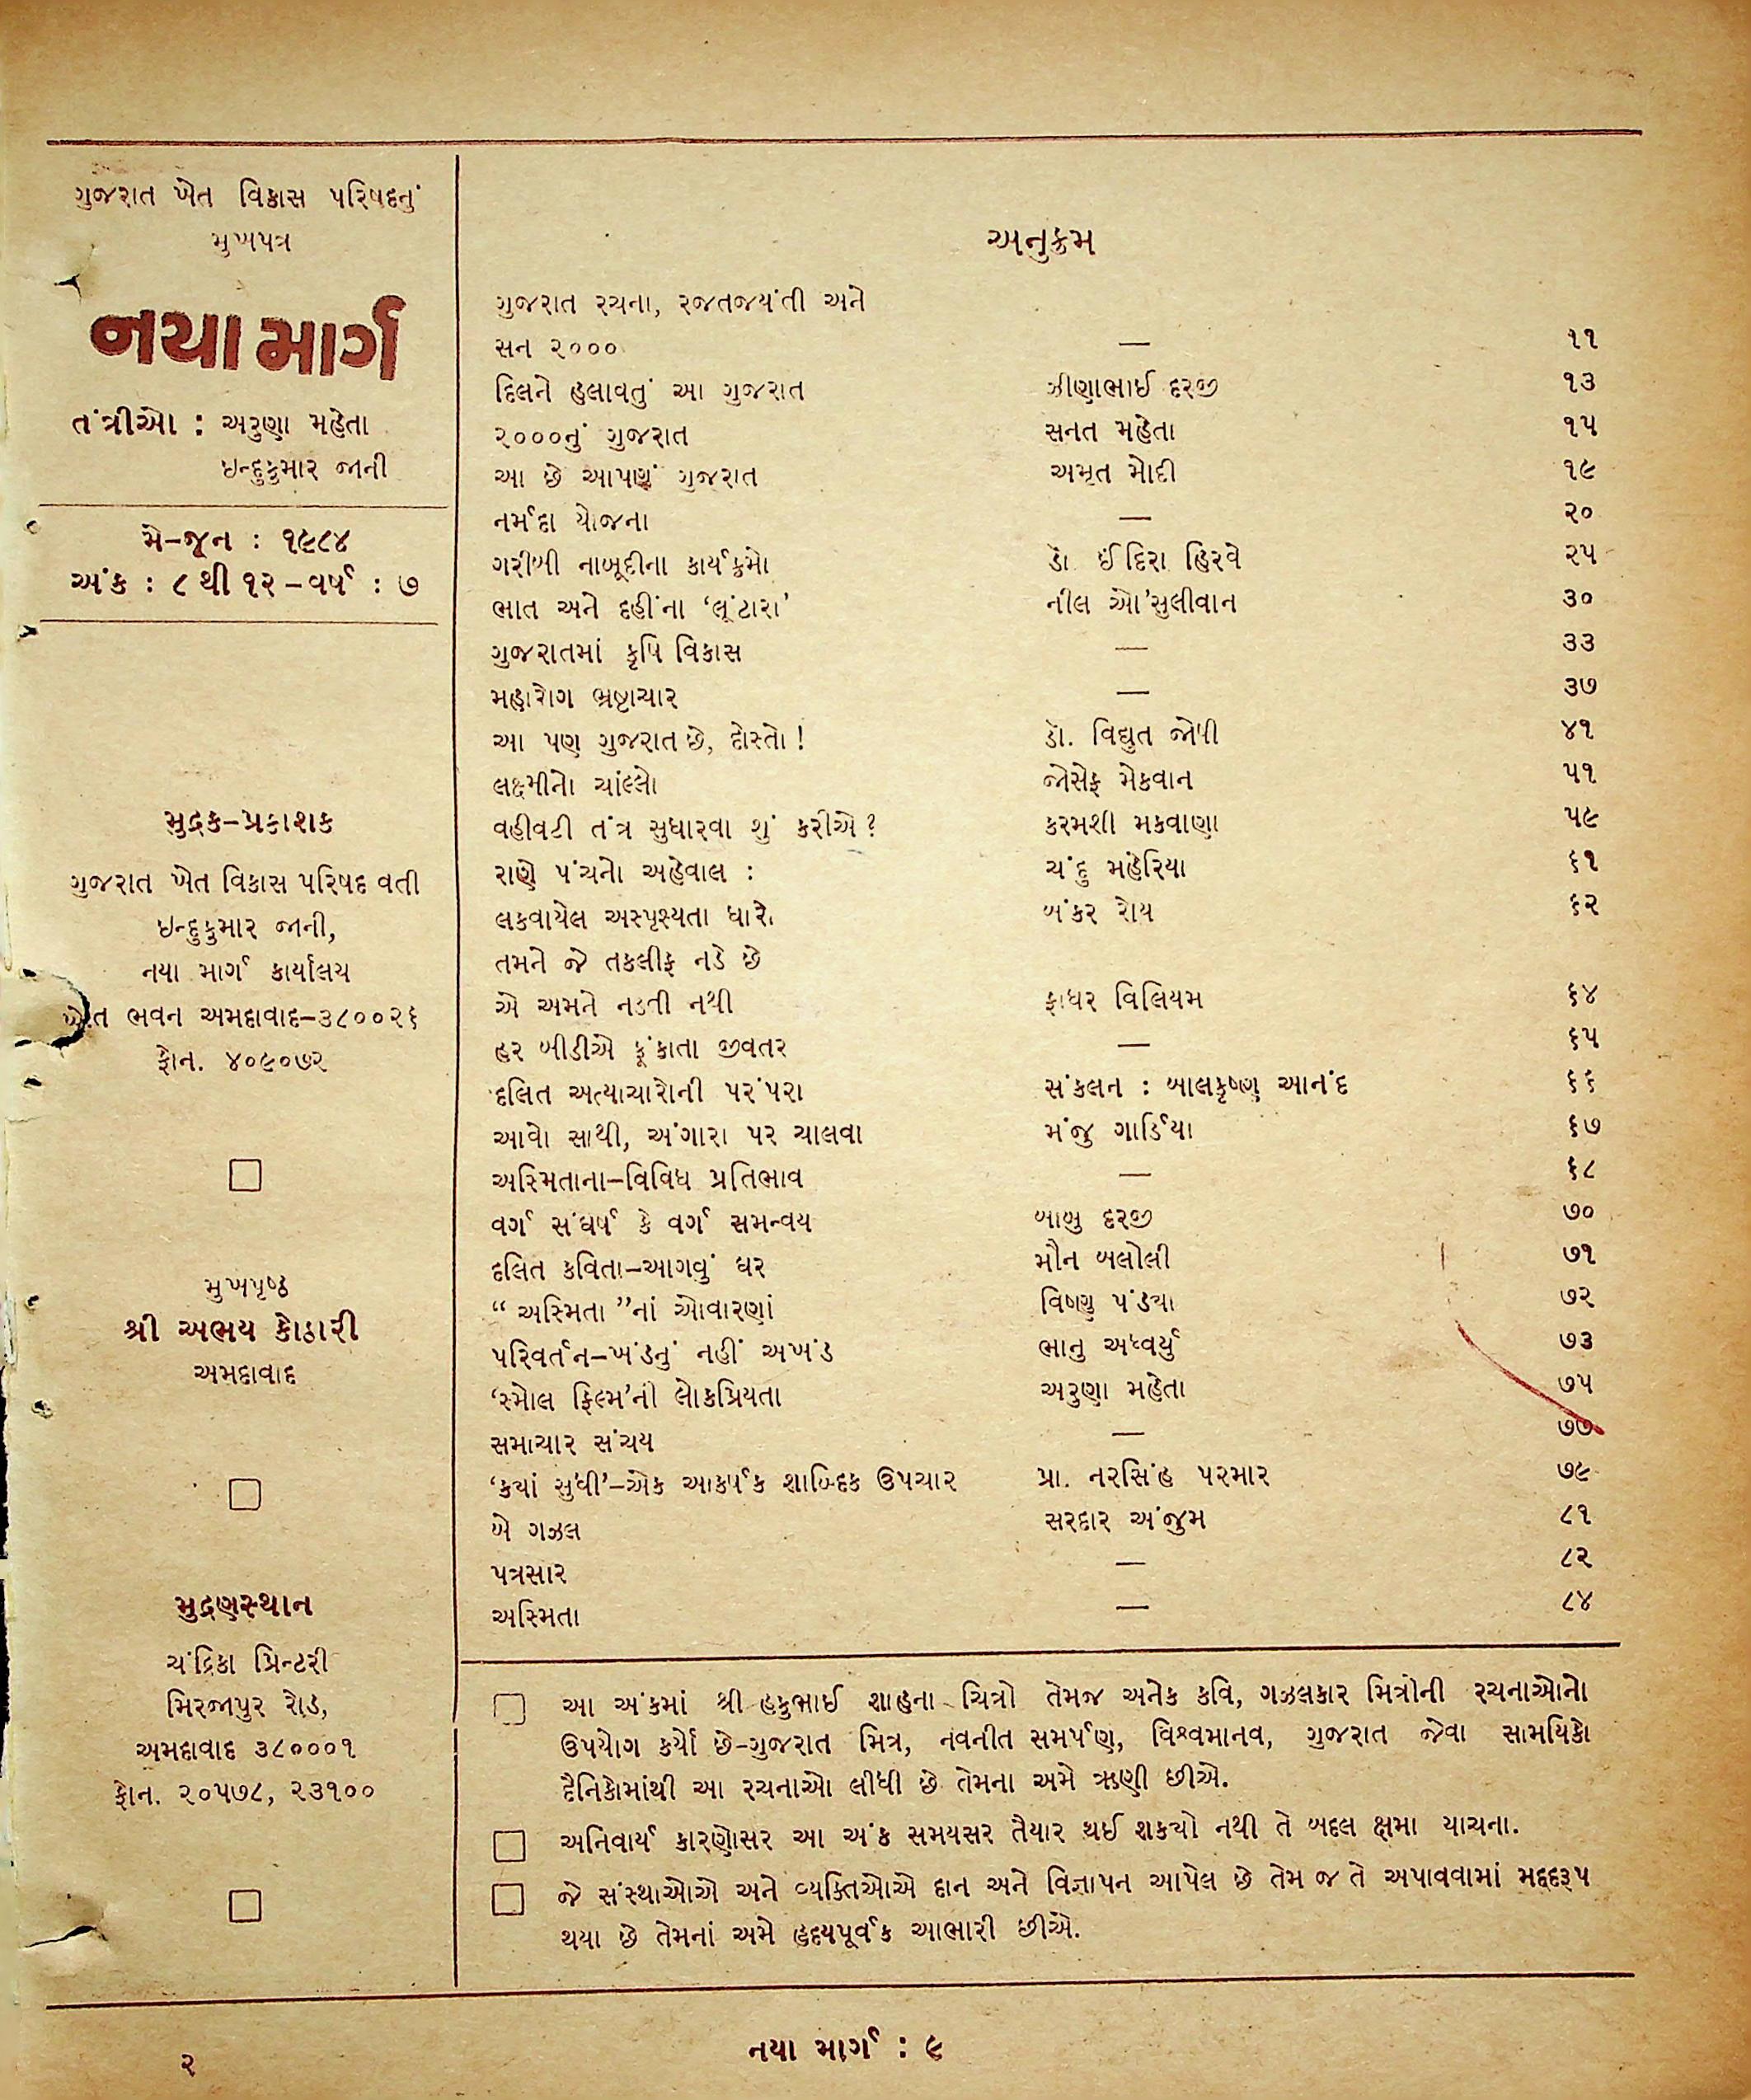 ગુજરાત ખેત વિકાસ પરિષદનું
મુખપત્ર
નયા માર્ગ
તંત્રીઓ : અરુણા મહેતા
ઇન્દુકુમાર જાની
મે-જૂન : ૧૯૮૪
અંક : ૮ થી ૧૨ – વર્ષ : ૭
મુદ્રક-પ્રકાશક
ગુજરાત ખેત વિકાસ પરિષદ વતી
ઇન્દુકુમાર જાની,
નયા માર્ગ કાર્યાલય
ખેત ભવન અમદાવાદ-૩૮૦૦૨૬
ફોન. ૪૦૯૦૭૨
મુખપૃષ્ઠ
શ્રી અભય કોઠારી
અમદાવાદ
મુદ્રણસ્થાન
ચંદ્રિકા પ્રિન્ટરી
મિરજાપુર રોડ,
અમદાવાદ ૩૮૦૦૦૧
ફોન. ૨૦૫૭૮, ૨૩૧૦૦
અનુક્રમ
ગુજરાત રચના, રજતજયંતી અને
સન ૨૦૦૦ — ૧૧
દિલને હલાવતું આ ગુજરાત ઝીણાભાઈ દરજી ૧૩
૨૦૦૦નું ગુજરાત સનત મહેતા ૧૫
આ છે આપણું ગુજરાત અમૃત મોદી ૧૯
નર્મદા યોજના — ૨૦
ગરીબી નાબૂદીના કાર્યક્રમો ડો ઈંદિરા હિરવે ૨૫
ભાત અને દહીંના ‘લૂંટારા’ નીલ ઓ'સુલીવાન ૩૦
ગુજરાતમાં કૃષિ વિકાસ — ૩૩
મહારોગ ભ્રષ્ટાચાર — ૩૭
આ પણ ગુજરાત છે, દોસ્તો! ડો. વિદ્યુત જોષી ૪૧
લક્ષ્મીનો ચાંલ્લો જોસેફ મેકવાન ૫૧
વહીવટી તંત્ર સુધારવા શું કરીએ? કરમશી મકવાણા ૫૯
રાણે પંચનો અહેવાલ : ચંદુ મહેરિયા ૬૧
લકવાયેલ અસ્પૃશ્યતા ધારો બંકર રોય ૬૨
તમને જે તકલીફ નડે છે
એ અમને નડતી નથી ફાધર વિલિયમ ૬૪
હર બીડીએ ફૂંકાતા જીવતર — ૬૫
દલિત અત્યાચારોની પરંપરા સંકલન : બાલકૃષ્ણ આનંદ ૬૬
આવો સાથી, અંગારા પર ચાલવા મંજુ ગાર્ડિયા ૬૭
અસ્મિતાના-વિવિધ પ્રતિભાવ — ૬૮
વર્ગ સંઘર્ષ કે વર્ગ સમન્વય બાબુ દરજી ૭૦
દલિત કવિતા-આગવું ઘર મૌન બલોલી ૭૧
“ અસ્મિતા ”નાં ઓવારણાં વિષ્ણુ પંડ્યા ૭૨
પરિવર્તન-ખંડનું નહીં અખંડ ભાનુ અધ્વર્યુ ૭૩
‘સ્મોલ ફિલ્મ’ની લોકપ્રિયતા અરુણા મહેતા ૭૫
સમાચાર સંચય — ૭૭
‘કયાં સુધી’-એક આકર્ષક શાબ્દિક ઉપચાર પ્રા. નરસિંહ પરમાર ૭૯
બે ગઝલ સરદાર અંજુમ ૮૧
પત્રસાર — ૮૨
અસ્મિતા — ૮૪
આ અંકમાં શ્રી હકુભાઈ શાહના ચિત્રો તેમજ અનેક કવિ, ગઝલકાર મિત્રોની રચનાઓનો
ઉપયોગ કર્યો છે-ગુજરાત મિત્ર, નવનીત સમર્પણ, વિશ્વમાનવ, ગુજરાત જેવા સામયિકો
દૈનિકોમાંથી આ રચનાઓ લીધી છે તેમના અમે ઋણી છીએ.
અનિવાર્ય કારણોસર આ અંક સમયસર તૈયાર થઈ શકયો નથી તે બદલ ક્ષમા યાચના.
જે સંસ્થાઓએ અને વ્યક્તિઓએ દાન અને વિજ્ઞાપન આપેલ છે તેમ જ તે અપાવવામાં મદ્દદરૂપ
થયા છે તેમનાં અમે હૃદયપૂર્વક આભારી છીએ.
૨
નયા માર્ગ : ૯